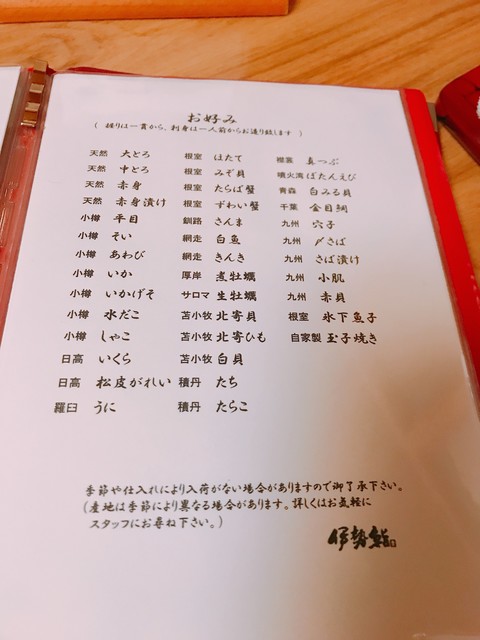 お好み
( 握りは一貫から、刺身は一人前からお造り致します )
天然 大とろ
天然 中とろ
天然 赤身
天然 赤身漬け
小樽 平目
小樽 そい
小樽 あわび
小樽 いか
小樽 いかげそ
小樽 水だこ
小樽 しゃこ
日高 いくら
日高 松皮がれい
羅臼 うに
根室 ほたて
根室 みぞ貝
根室 たらば蟹
根室 ずわい蟹
釧路 さんま
網走 白魚
網走 きんき
厚岸 煮牡蠣
サロマ 生牡蠣
苫小牧 北寄貝
苫小牧 北寄ひも
苫小牧 白貝
積丹 たち
積丹 たらこ
根室 真つぶ
噴火湾 ぼたんえび
青森 白みる貝
千葉 金目鯛
九州 穴子
九州 〆さば
九州 さば漬け
九州 小肌
九州 赤貝
根室 氷下魚子
自家製 玉子焼き
季節や仕入れにより入荷がない場合がありますので御了承下さい。
(産地は季節により異なる場合があります。詳しくはお気軽に
スタッフにお尋ね下さい。)
伊勢鮨